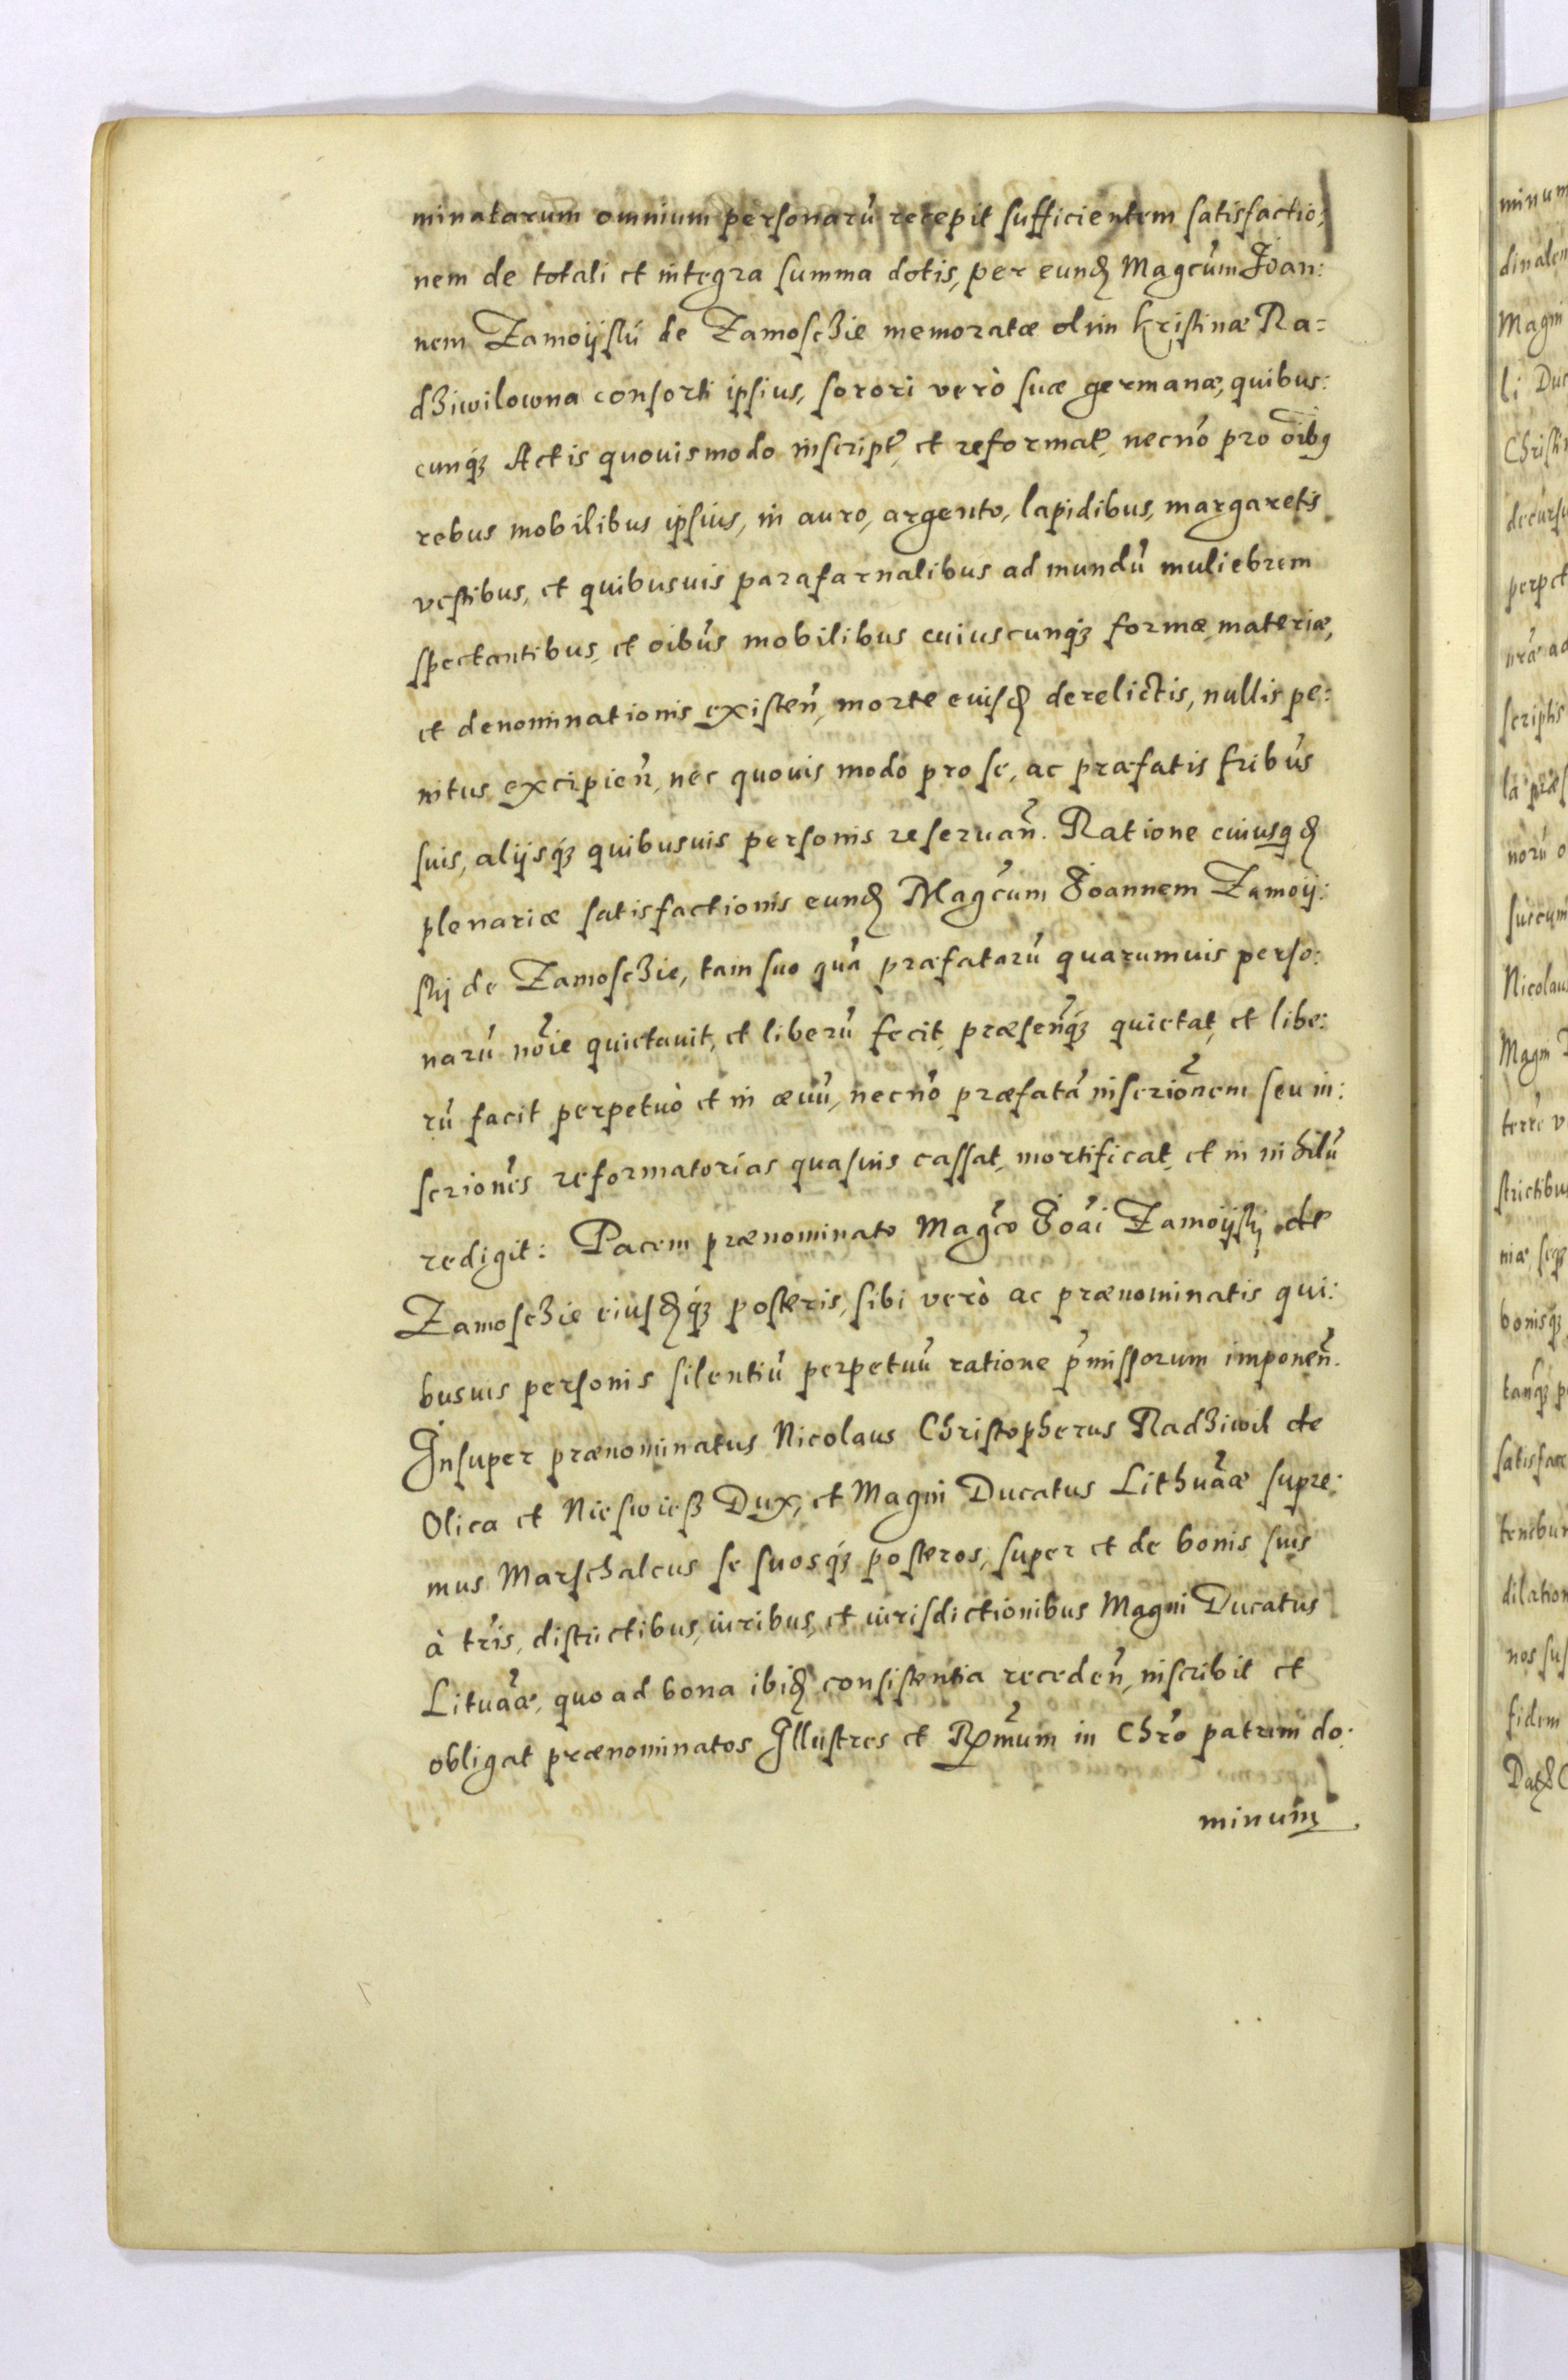 minatarum omnium personarũ recepit sufficientem satisfactio:
nem de totali et integra summa dotis, per eundꝫ Magcũm Joan:
nem Zamoijskũ de Zamosczie memoratæ olim Kristinæ Ra=
dziwilowna consorti ipsius, sorori verò suæ germanæ, quibus:
cunqꝫ Actis quouismodo inscript̃, et reformat̃, necnõ pro oĩbꝯ
rebus mobilibus ipsius, in auro, argento, lapidibus, margaretis
vestibus, et quibusuis parafarnalibus ad mundũ muliebrem
spectantibus, et oibũs mobilibus cuiuscunqꝫ formæ, materiæ,
et denominationis existeñ, morte euisdꝫ derelictis, nullis pe:
nitus excipieñ, nec quouis modo pro se, ac præfatis fribũs
suis, alijsqꝫ quibusuis personis reseruañ. Ratione cuiusqdꝫ
plenariæ satisfactionis eundꝫ Magcũm Joannem Zamoij:
skij de Zamosczie, tam suo quã præfatarũ quarumuis perso:
narũ noĩe quietauit, et liberũ fecit, præseñqꝫ quietat, et libe:
rũ facit perpetuò et in æuũ, necnõ præfatã inscriõnem seu in:
scrionẽs reformatorias quasuis cassat, mortificat, et in nihilũ
redigit: Pacem prænominato Magcõ Joãi Zamoijskj de
Zamosczie eiusdꝫqꝫ posteris, sibi verò ac prænominatis qui:
busuis personis silentiũ perpetuũ ratione p̃missorum imponeñ.
Insuper prænominatus Nicolaus Christopherus Radziwil de
Olica et Nieswieß Dux, et Magni Ducatus Lithuãæ supre:
mus Marschalcus se suosqꝫ posteros, super et de bonis suis
à trĩs, districtibus, iuribus, et iurisdictionibus Magni Ducatus
Lituãæ, quo ad bona ibidꝫ consistentia recedeñ, inscribit et
obligat prænominatos Illustres et Rṽmum in Chrõ patrem do:
minum